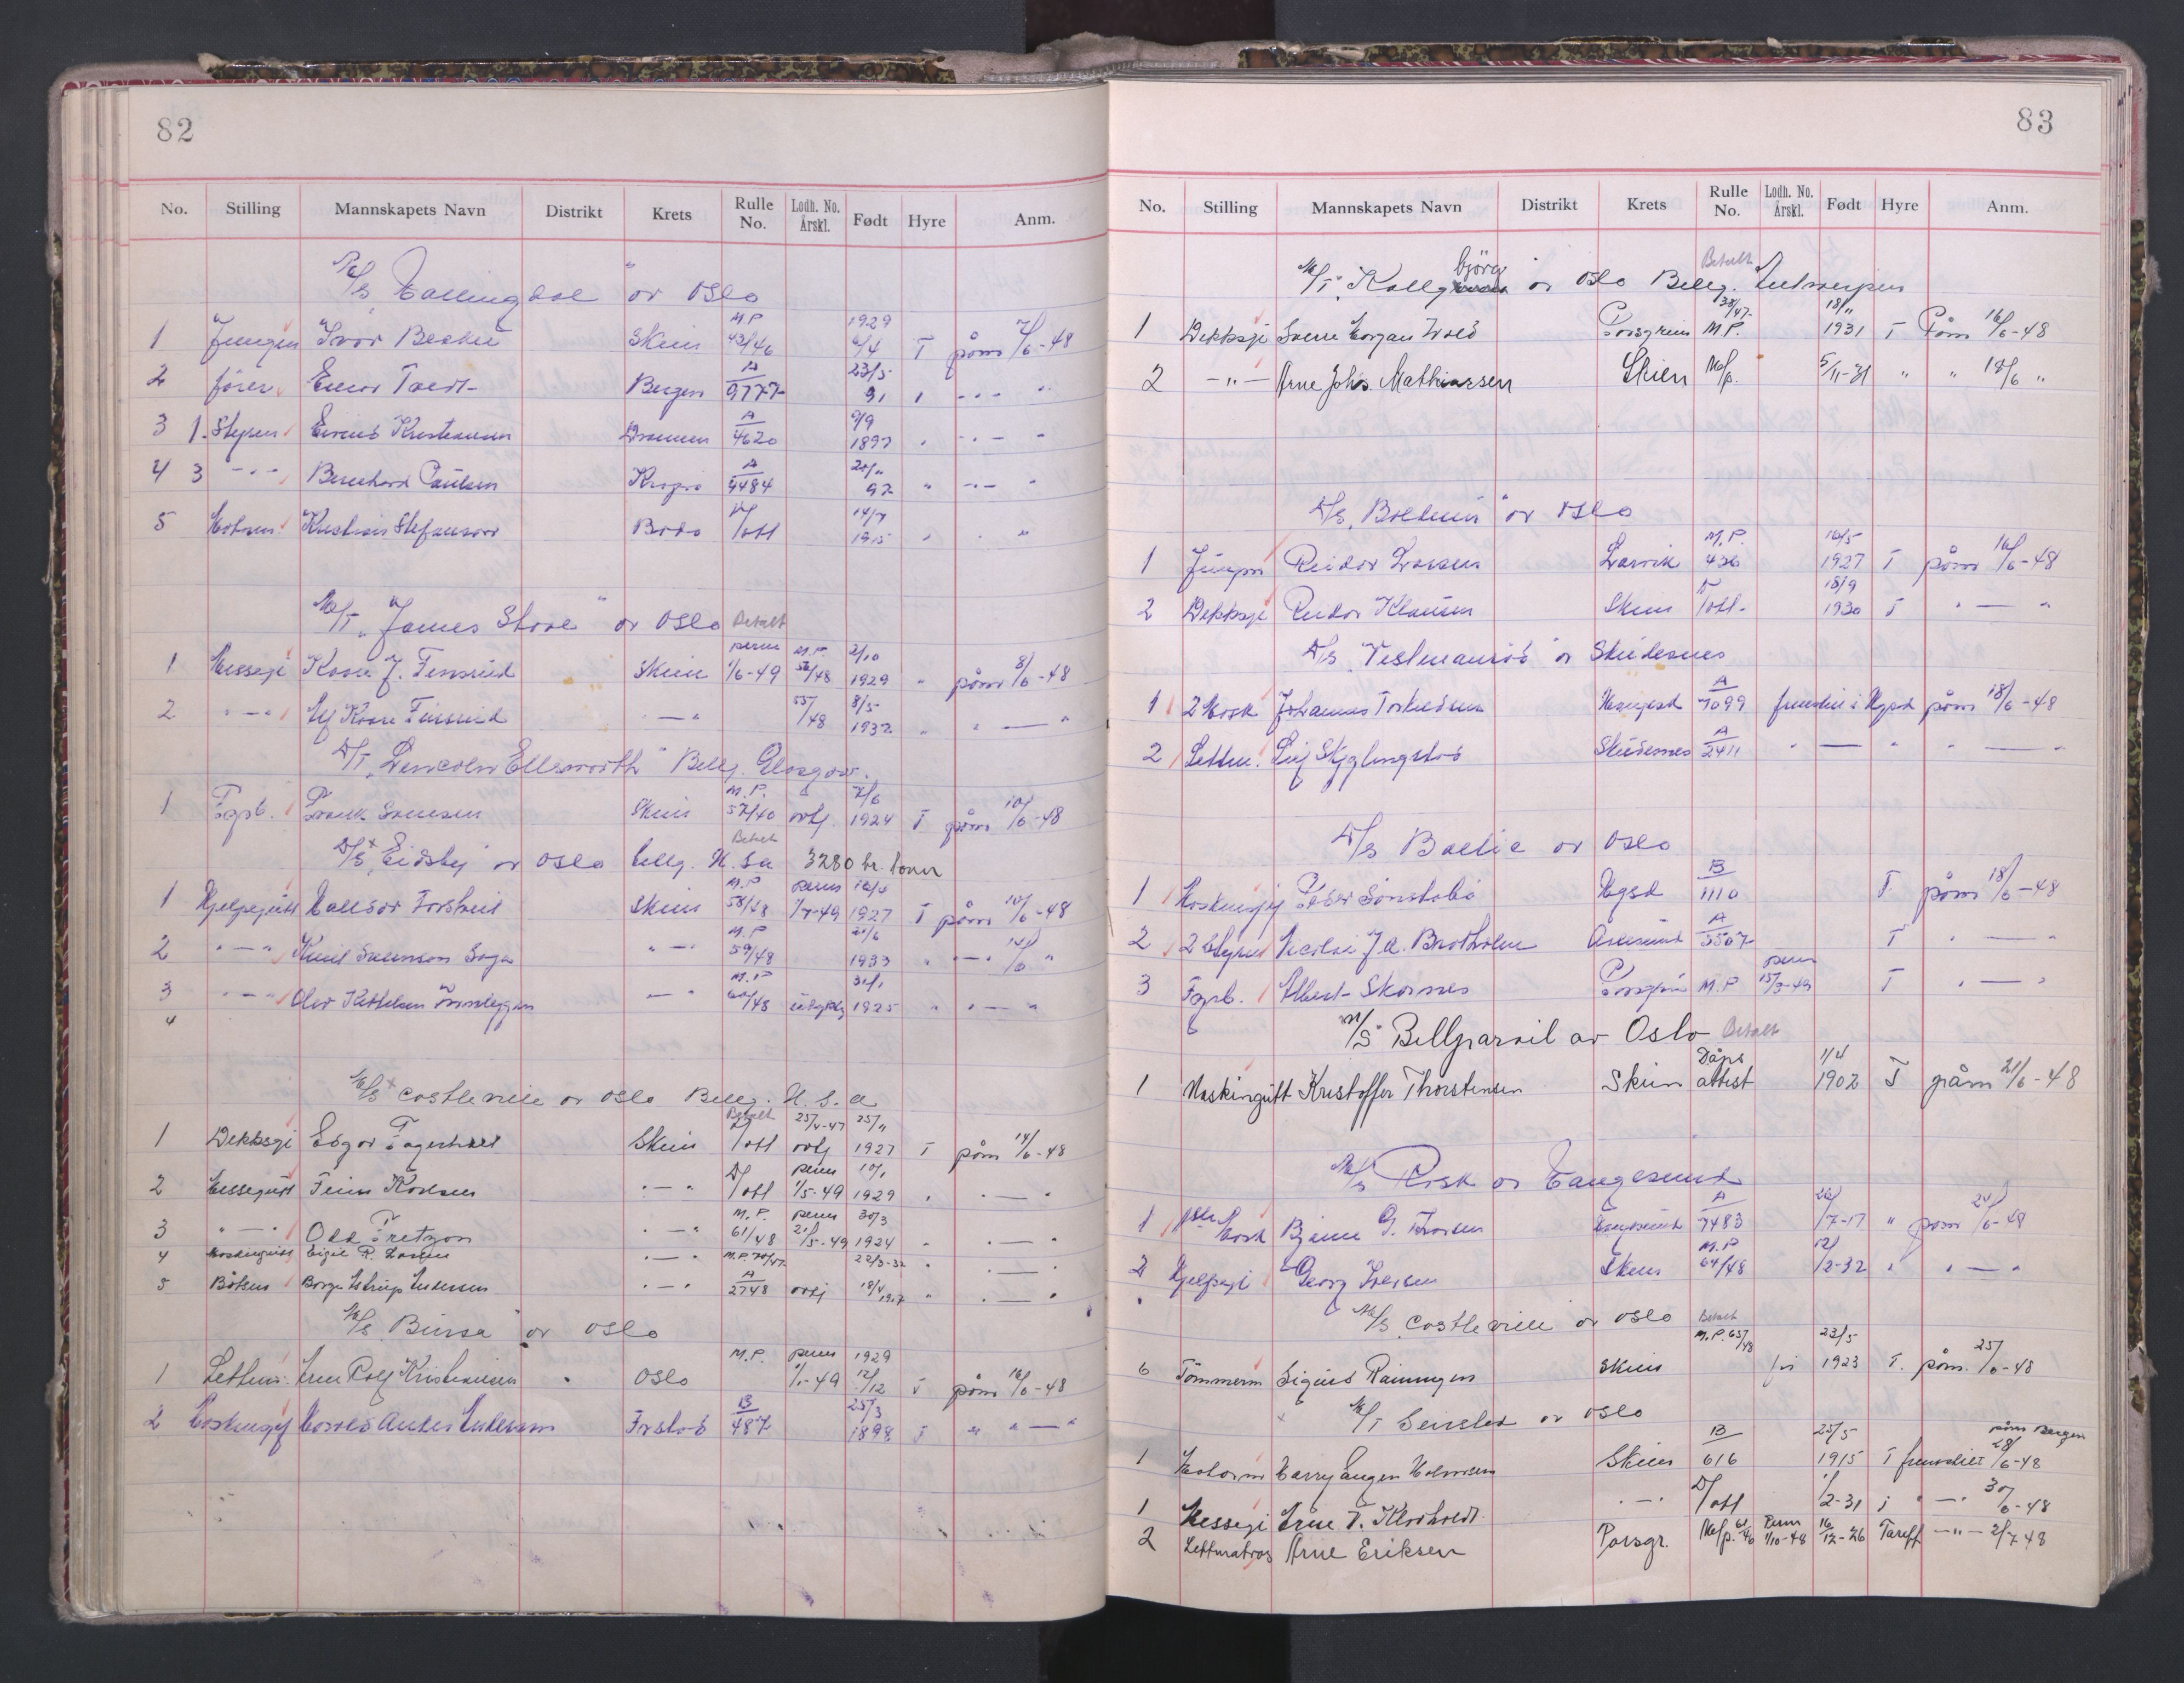 82
No. Stilling Mannskapets Navn Distrikt Krets Rulle No. Lodh. No. Årskl. Født Hyre Anm.
M/S "Hallingdal" av Oslo
1 Jungm Ivar Skien M.P. 43/46 1929 6/4 T påm 7/6-48
2 fører Einar Bergen A 9777 23/5 91 " - " - "
3 1. Styrm Kristiansen Drammen A 4620 9/9 1897 " - " - "
4 3 - " - Bernhard Paulsen Kragerø A 9484 97 " - " - "
5 Motorm. Kristian Stefansson Bodø D/att 14/7 1915 " " "
M/T "James Stove" av Oslo Betalt
1 Messegt Kaare J. Finsrud Skien perm 1/6-49 M.P. 56/48 2/10 1929 " påm 8/6-48
2 " - " Alf Kaare Finsrud " - " 55/48 8/5 1932 " " — "
D/T "Lincoln Ellsworth" Bellg. Glasgow.
1 Fyrb. Frank Skien M.P. 57/40 avtj. 7/6 1924 T påm 10/6-48
D/S "Eidsby" av Oslo bellg. U.S.A. Betalt 3280 br. tonn
1 Hjelpegutt Hallvor Skien M.P. 58/48 perm 1/7-49 1927 T påm 10/6-48
2 " — " Knut Svenson Saga " — " M.P. 59/48 21/6 1933 " - " - 14/6 "
3 " — " Olav Kittelsen — " M.P. 60/48 31/1 1925 " " — "
4
M/S Castleville av Oslo Bellg. U.S.A
1 Dekksgt Edgar Fagerholt Skien Betalt D/att 25/4-47 avtj 25/11 1927 T påm 14/6-48
2 Messegutt Finn Karlsen " — " D/att perm 1/5-49 10/1 1929 " " — "
3 " — " Odd Fretzon " — " M.P. 61/48 perm 21/5-49 30/3 1924 " — "
4 Maskingutt Eigil R. Larsen " — " M.P. 70/47 22/3-32 " " — "
5 Båtsm Børge Astrup Andersen " — " A 2748 avtj 18/4 1917 " " — "
M/S "Bursa" av Oslo
1 Lettm. Arne Rolf Kristiansen Oslo M.P. perm 1/1-49 1929 12/12 T påm 16/6-48
2 Harald Anker Andersen B 487 25/3 1898 T " " — "
83
No. Stilling Mannskapets Navn Distrikt Krets Rulle No. Lodh. No. Årskl. Født Hyre Anm.
M/T "Kollbjørg" av Oslo Bellg. Antwerpen Betalt
1 Dekksgt Sverre Wold Porsgrunn 38/47 M.P. 18/11 1931 T Påm 16/6-48
2 - " - Arne Johs. Mathiassen Skien M/p. 5/11-31 " " 18/6 "
D/S "Bolt" av Oslo
1 Jungm Reidar Larsen Larvik M.P. 436 16/5 1927 T påm 16/6-48
2 Dekksgt Reidar Klausen Skien D/att. 18/9 1930 T " — "
D/S "Vestmanrød" av Skudesnes
1 2 Mask Johannes Torkildsen Haugesd A 7099 fremstilt i Hgsd påm 18/6-48
2 Lettm. Leif Skudesnes A 2411 " — " " — "
D/S Baltic av Oslo
1 Peder Sønstabø Hgsd B 1110 T påm 18/6-48
2 2 Styrm Nicolai J.A. Brotholm Ålesund A 3567 T " — "
3 Fyrb. Albert Skarnes Porsgrunn M.P perm 15/3-49 T " — "
M/S "Bellparveil av Oslo Betalt
1 Maskingutt Kristoffer Thorstensen Skien Dåps attest 1/4 1902 T påm 21/6-48
M/S Risk av Haugesund
1 Mask Bjarne G. Thorsen Haugesund A 7483 26/7-17 " påm 24/6-48
2 Hjelpegt Georg Iversen Skien M.P 64/48 12/2-32 " " — "
M/S Castleville av Oslo Betalt
6 Tømmerm Sigurd Rønningen Skien M.P. 65/48 23/5 1923 T. påm. 25/6-48
M/T Seirstad av Oslo
1 Motorm Harry Eugen Halvorsen Skien B 616 25/5 1915 T fremstilt påm Bergen 28/6-48
1 Messegt Arne T. Klovholt " — " D/att 1/2-31 T " — " 30/6-48
2 Lettmatros Arne Eriksen Porsgr. M/p. 61/46 Perm 1/10-48 16/12-26 Tariff — " — 2/7 48